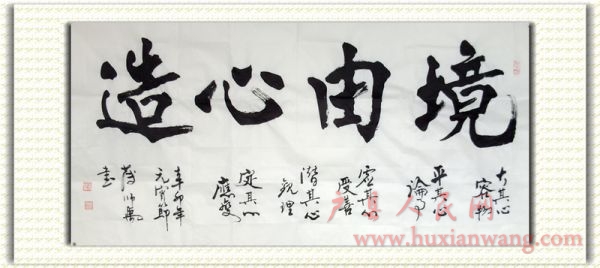 境由心造
大其心
容物
平其心
論事
虚其心
受善
潜其心
觀理
定其心
應變
辛卯年
元宵節
書
户县人民网
www.huxianwang.com